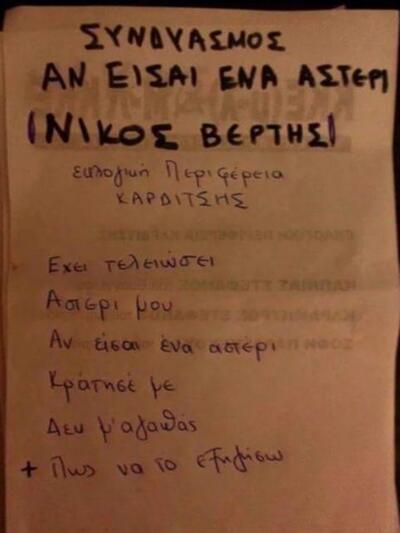 ΣΥΝΔΥΑΣΜΟΣ
ΑΝ ΕΙΣΑΙ ΕΝΑ ΑΣΤΕΡΙ
(ΝΙΚΟΣ ΒΕΡΤΗΣ)
εκλογική Περιφέρεια
ΚΑΡΔΙΤΣΗΣ
Εχει τελειώσει
Αστέρι μου
Αν είσαι ένα αστερι
Κράτησέ με
Δεν μ'αγαπάς
+ Πως να το εξηγήσω